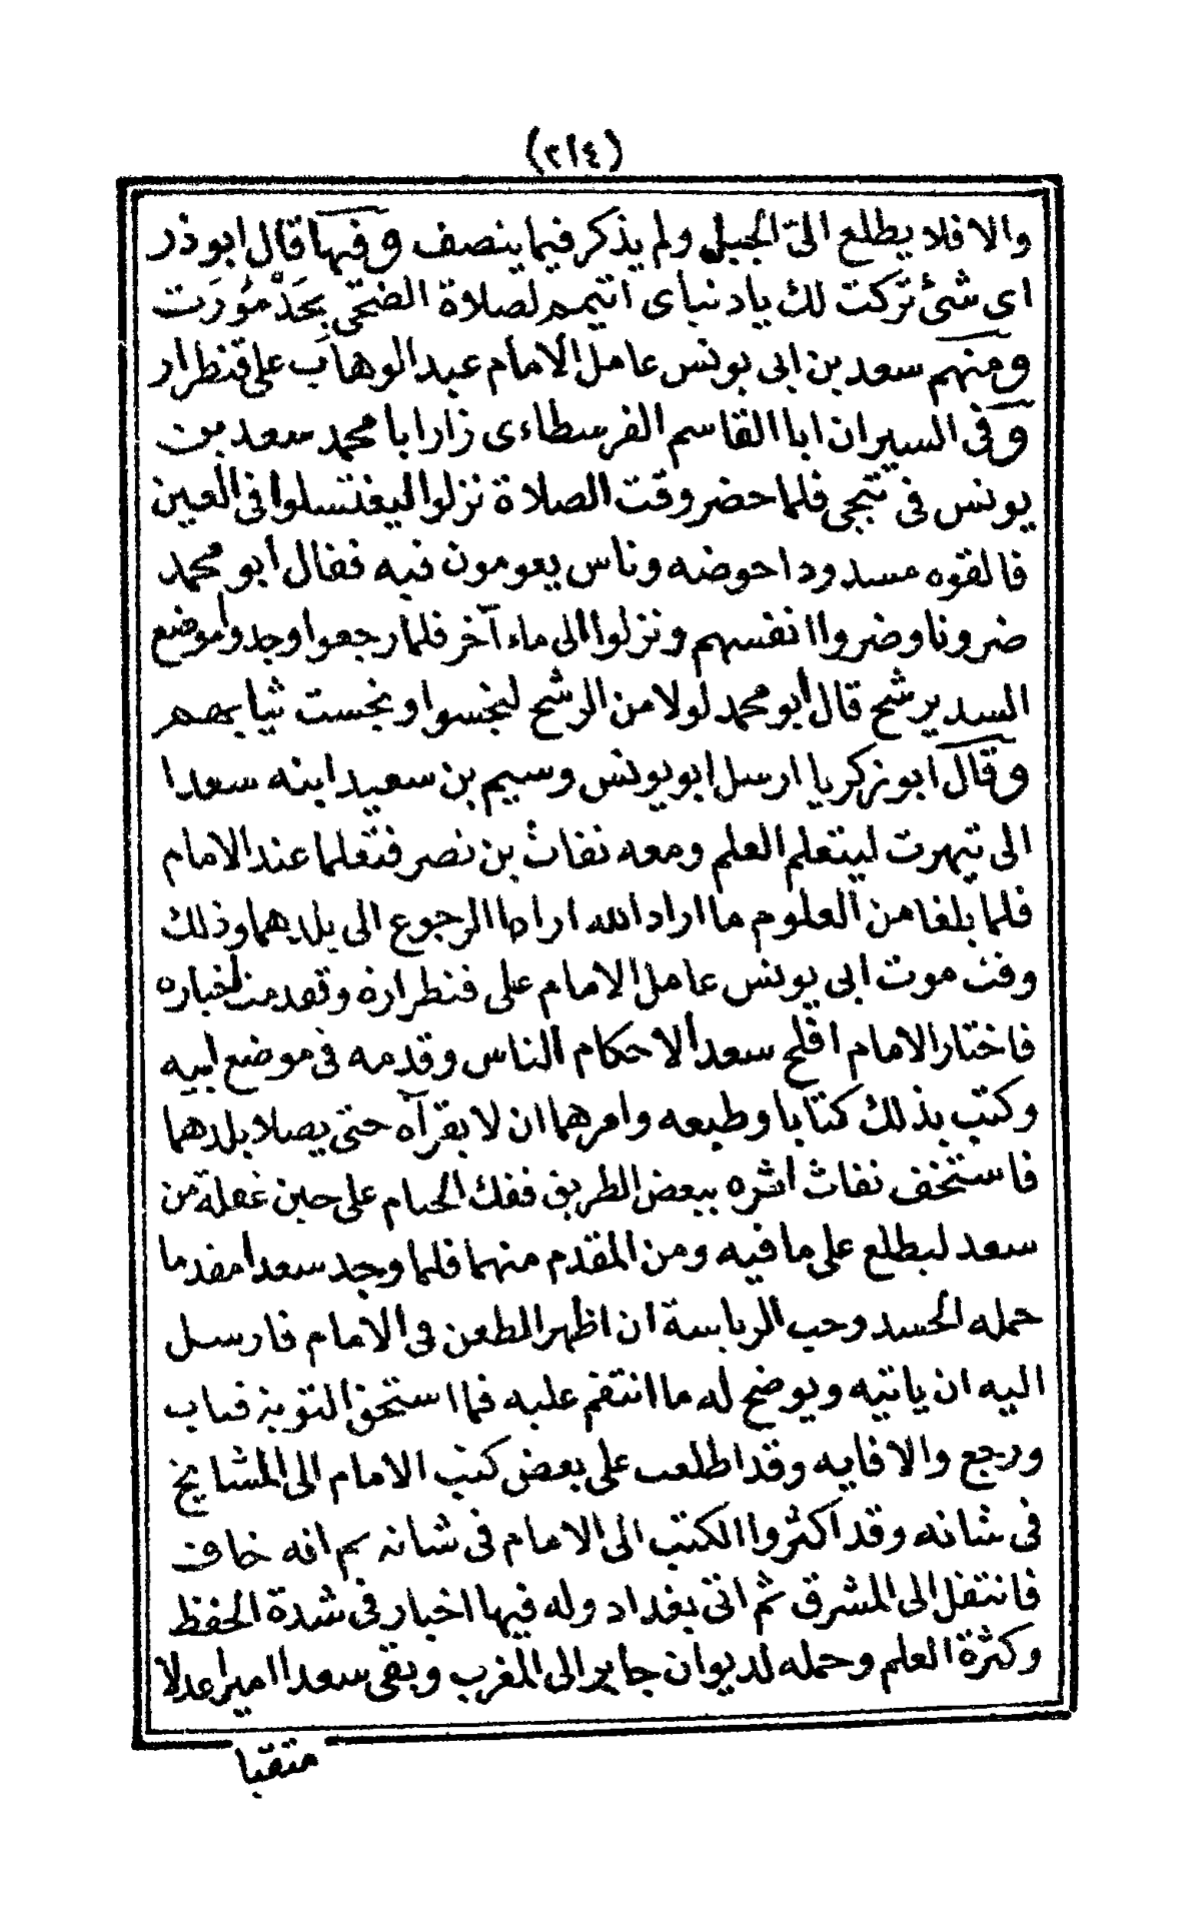 (٢١٤)
والا فلا يطلع الىّ الجبلى ولم يذكر فيما ينصف وفيها قال ابو ذر
اى شئ تركت لك ياد نباى اتيمم لصلاة الضحى بحَدْ مُوُرَت
ومنهم سعد بن ابى يونس عامل الامام عبد الوهاب على قنطرار
وفى السير ان ابا القاسم الفرسطاءى زار ابا محمد سعد بن
يونس فى تنجى فلما حضر وقت الصلاة نزلوا ليغتسلوا فى العين
فالقوه مسدودا حوضه وناس يعومون فيه فقال أبو محمد
ضرونا وضروا انفسهم ونزلوا الى ماء آخر فلما رجعوا وجدوا موضع
السد يرشح قال أبو محمد لولا من الرشح لنجسوا ونجست ثيابهم
وقال ابو زكريا ارسل ابو يونس وسيم بن سعيد ابنه سعدا
الى تيهرت ليتعلم العلم ومعه نفاث بن نصر فتعلما عند الامام
فلما بلغا من العلوم ما اراد الله ارادا الرجوع الى بلدهما وذلك
وقت موت ابى يونس عامل الامام على قنطرارة وتقدمت اخباره
فاختار الامام افلح سعدا لاحكام الناس وقدمه فى موضع ابيه
وكتب بذلك كتابا وطبعه وامرهما ان لا يقرآه حتى يصلا بلدهما
فاستخف نفاث اثره ببعض الطريق ففك الختام على حين غفلة من
سعد ليطلع على ما فيه ومن المقدم منهما فلما وجد سعدا مقدما
حمله الحسد وحب الرياسة ان اظهر الطعن فى الامام فارسل
اليه ان ياتيه ويوضح له ما انتقم عليه فما استحق التوبة فتاب
ورجع والا فابه وقد اطلعت على بعض كتب الامام الى المشايخ
فى شانه وقد اكثروا الكتب الى الامام فى شانه ثم انه خاف
فانتقل الى المشرق ثم اتى بغداد وله فيها اخبار فى شدة الحفظ
وكثرة العلم وحمله لديوان جابر الى المغرب وبقى سعد اميرا عدلا
متقيا